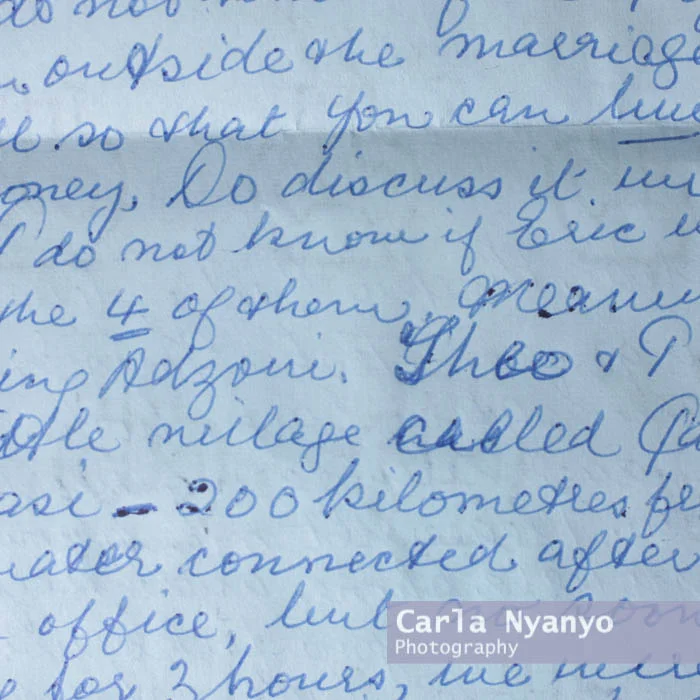 do not
outside the marriage
so that you can
oney. Do discuss it
I do not know if Eric
the 4 of them. Meanw
ing Adzoni. Theo & I
village called
asi - 200 kilometres fr
water connected after
office, but
for 3 hours, we
Carla Nyanyo
Photography